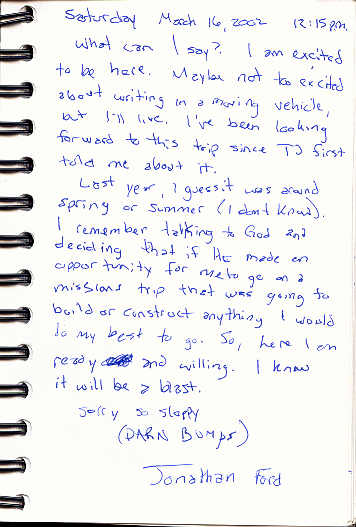 Saturday March 16, 2002 12:15 p.m.
What can I say? I am excited
to be here. Maybe not too excited
about writing in a moving vehicle,
but I'll live. I've been looking
forward to this trip since TJ first
told me about it.
Last year, I guess it was around
spring or summer (I dont know).
I remember talking to God and
deciding that if He made an
opportunity for me to go on a
missions trip that was going to
build or construct anything I would
do my best to go. So, here I am
ready and willing. I know
it will be a blast.
sorry so sloppy
(DARN BUMPS)
Jonathan Ford